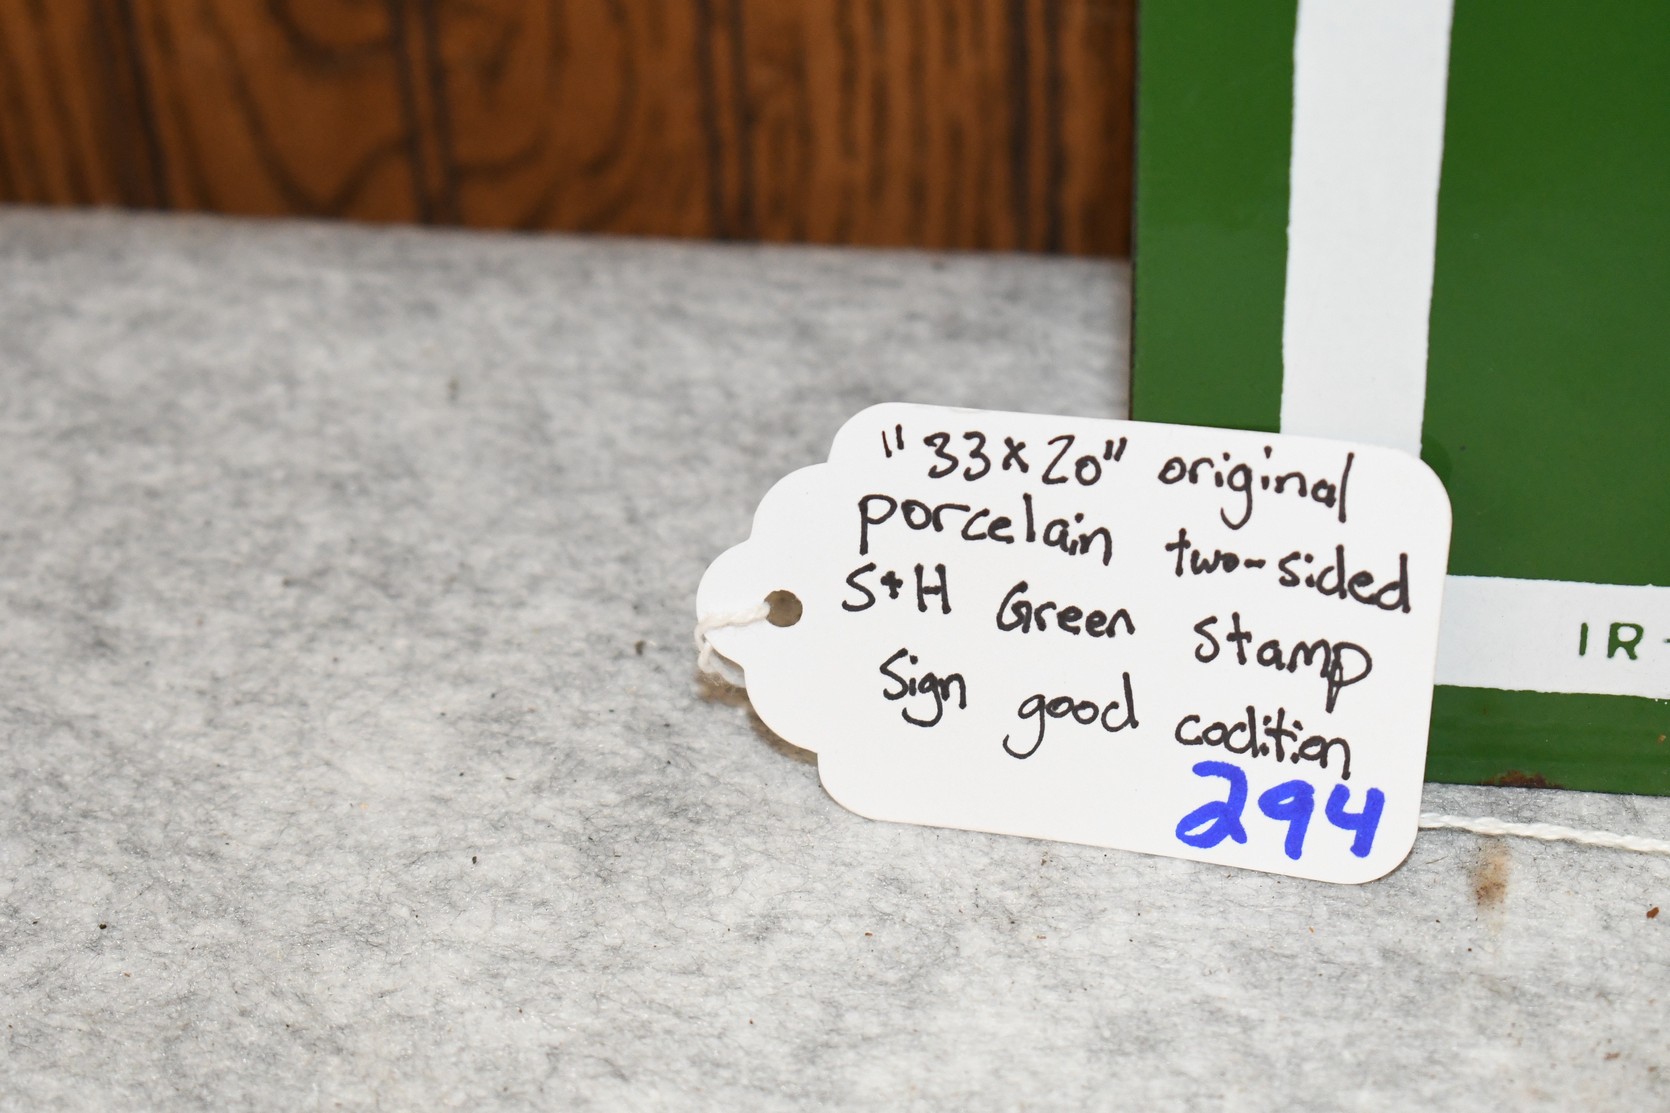 "33x20" original
porcelain two-sided
S+H Green Stamp
Sign good codition
294
IR-